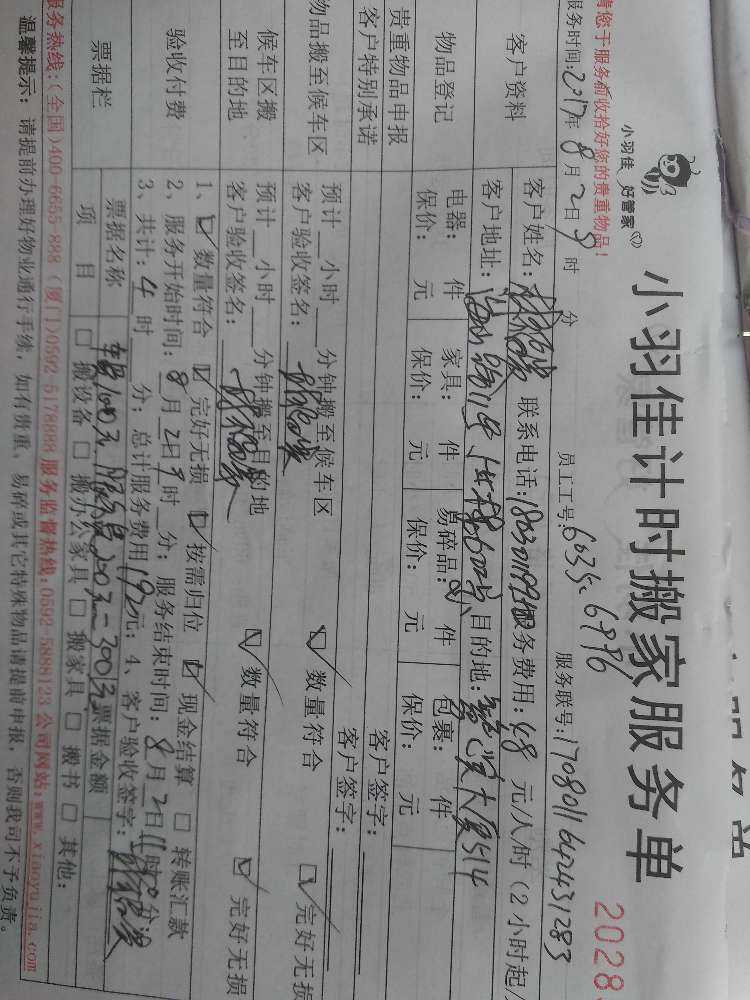 小羽佳计时搬家服务单
2028
小羽佳 好管家
请您于服务前收拾好您的贵重物品!
员工工号:6035. 6896 服务联号:1708011642431283
服务时间:2017年8月2日9时 分
客户资料
客户姓名: 联系电话: 服务费用:48 元/人/时(2小时起
客户地址: 目的地: 大厦514
物品登记
电器: 件 家具: 件 易碎品: 件 包裹: 件
保价: 元 保价: 元 保价: 元 保价: 元
贵重物品申报
客户签字:
客户特别承诺
客户签字:
物品搬至候车区
预计 小时 分钟搬至候车区 数量符合 完好无损
客户验收签名:
候车区搬至目的地
预计 小时 分钟搬至目的地 数量符合 完好无损
客户验收签名:
验收付费
1、 数量符合 完好无损 按需归位 现金结算 转账汇款
2、服务开始时间:8月2日9时 分; 服务结束时间:8月2日11时 分
3、共计:4时 分; 总计服务费用192元; 4、客户验收签字:
票据栏
票据名称 车费100元 服务费200元=300元 票据金额
项 目 搬设备 搬办公家具 搬家具 搬书 其他:
服务热线:(全国)400-6655-888 (厦门)0592-5178888 服务监督热线:0592-5888123 公司网站:www.xiaoyujia.com
温馨提示: 请提前办理好物业通行手续,如有贵重、易碎或其它特殊物品请提前申报,否则我司不予负责。